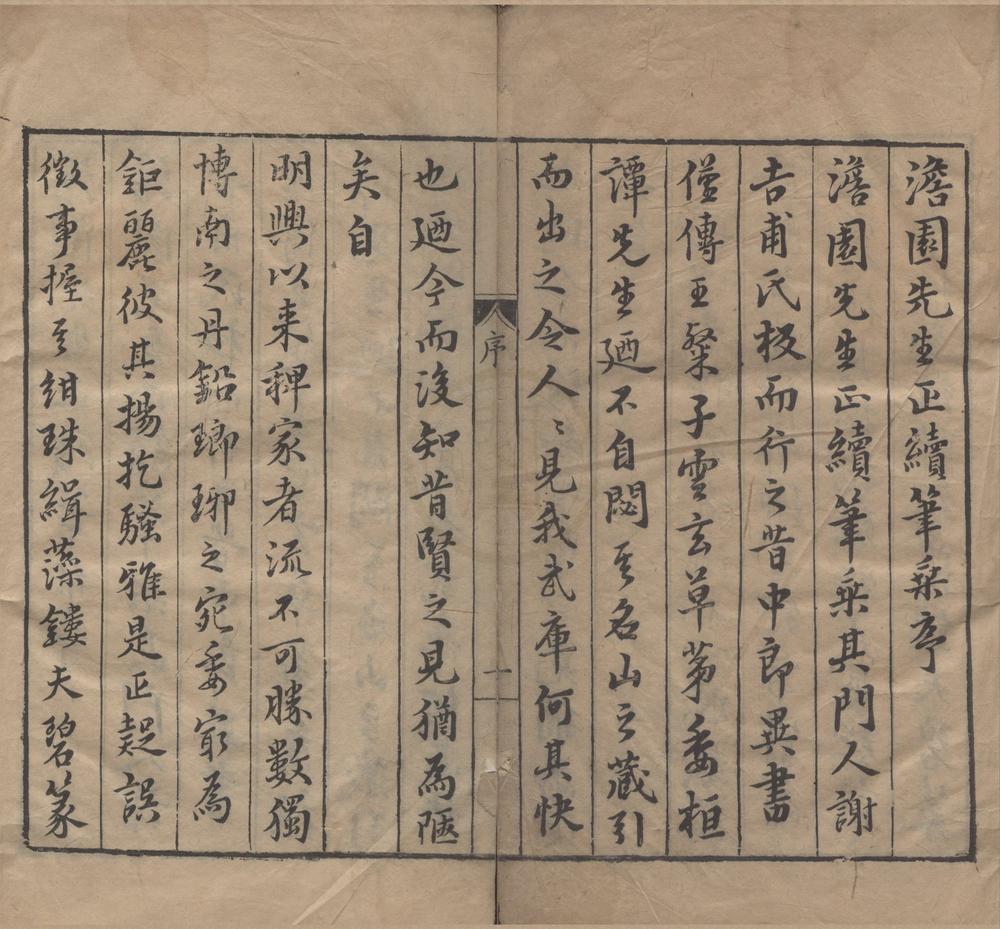 澹園先生正續筆乘序
澹園先生正續筆乘其門人謝
吉甫氏校而行之昔中郎異書
僅傳王粲子雲玄草茅委桓
譚先生廼不自閟其名山之藏引
而出之令人〻見我武庫何其快
序
一
也廼今而後知昔賢之見猶為陋
矣自
明興以来稗家者流不可勝數獨
博南之丹鉛瑯琊之宛委窮為
鉅麗彼其揚扢騷雅是正疑誤
徵事握其紺珠緝藻鏤夫碧篆